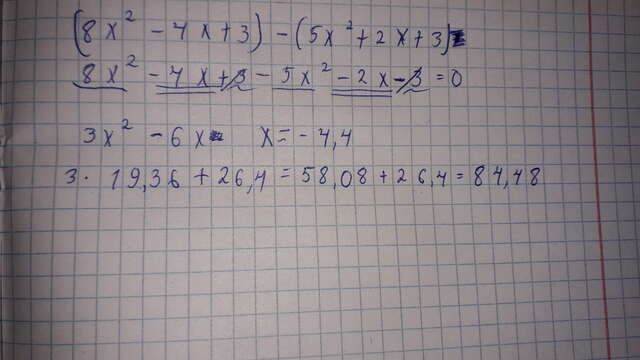 (8x² - 4x + 3) - (5x² + 2x + 3)
8x² - 4x + 3 - 5x² - 2x - 3 = 0
3x² - 6x x = -4,4
3 · 19,36 + 26,4 = 58,08 + 26,4 = 84,48